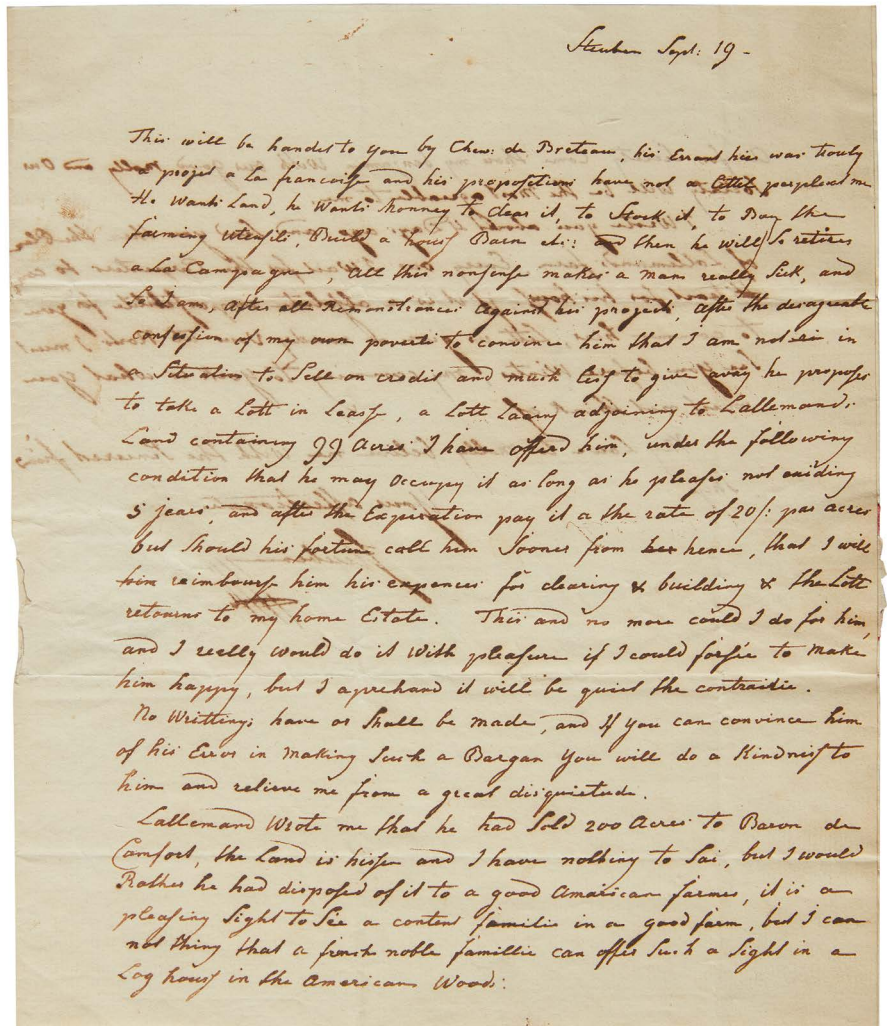 Steuben Sept: 19 -
This will be handet to you by Chev: de Breteau, his Errant hier was truly
a projet a la francoise and his propositions have not a littel perplexed me
He wants Land, he wants monney to clear it, to Stock it, to Buy the
farming utensils, Build a house Barn etc: and then he will So retire
a La Campagne, all this nonsense makes a man really Sick, and
So I am, after all Remonstrances against his project, after the desagreable
confession of my own poverti to convince him that I am not in
a Situation to Sell on credit and much less to give away he proposes
to take a Lott in Lease, a Lott Laaing adjoining to Lallemands
Land containing 99 Acres I have offerd him, under the following
condition that he may occupy it as long as he pleases not exiding
5 jears, and after the Experation pay it a the rate of 20/: par acres
but should his fortune call him Sooner from her hence, that I will
him reimbourse him his expences for clearing & building & the Lott
retourns to my home Estate. This and no more could I do for him,
and I really would do it with pleasure if I could forsée to make
him happy, but I aprehand it will be quiet the contrairie.
No Writtings have or Shall be made, and If you can convince him
of his Error in making Such a Bargan you will do a Kindness to
him and relieve me from a great disquietude.
Lallemand Wrote me that he had Sold 200 Acres to Baron de
Camfort, the Land is hisse and I have nothing to Sai, but I would
Rather he had disposed of it to a good American farmer, it is a
pleasing Sight to Sée a content familie in a good farm, but I can
not thing that a french noble famillie can offer Such a Sight in a
Log house in the American Woods: